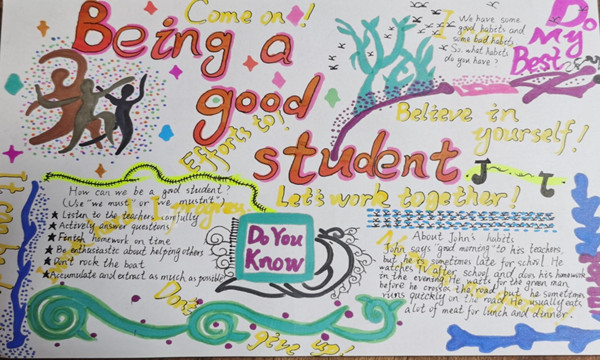 Come on!
Being a
good
student
Efforts to!
We have some
good habits and
some bad habits
So what habits
do you have?
I
Do
My
Best
Believe in
yourself!
Let's work together!
How can we be a good student?
(Use "we must" or "we mustn't")
★ Listen to the teacher carefully
★ Actively answer questions
★ Finish homework on time
★ Be enthusiastic about helping others
★ Don't rock the boat
★ Accumulate and extract as much as possible
Do You
Know
Don't
give up!
About John's habits
John says good morning to his teachers,
but he is sometimes late for school. He
watches TV after school and does his homework
in the evening. He waits for the green man
before he crosses the road but he sometimes
runs quickly on the road. He usually eats
a lot of meat for lunch and dinner